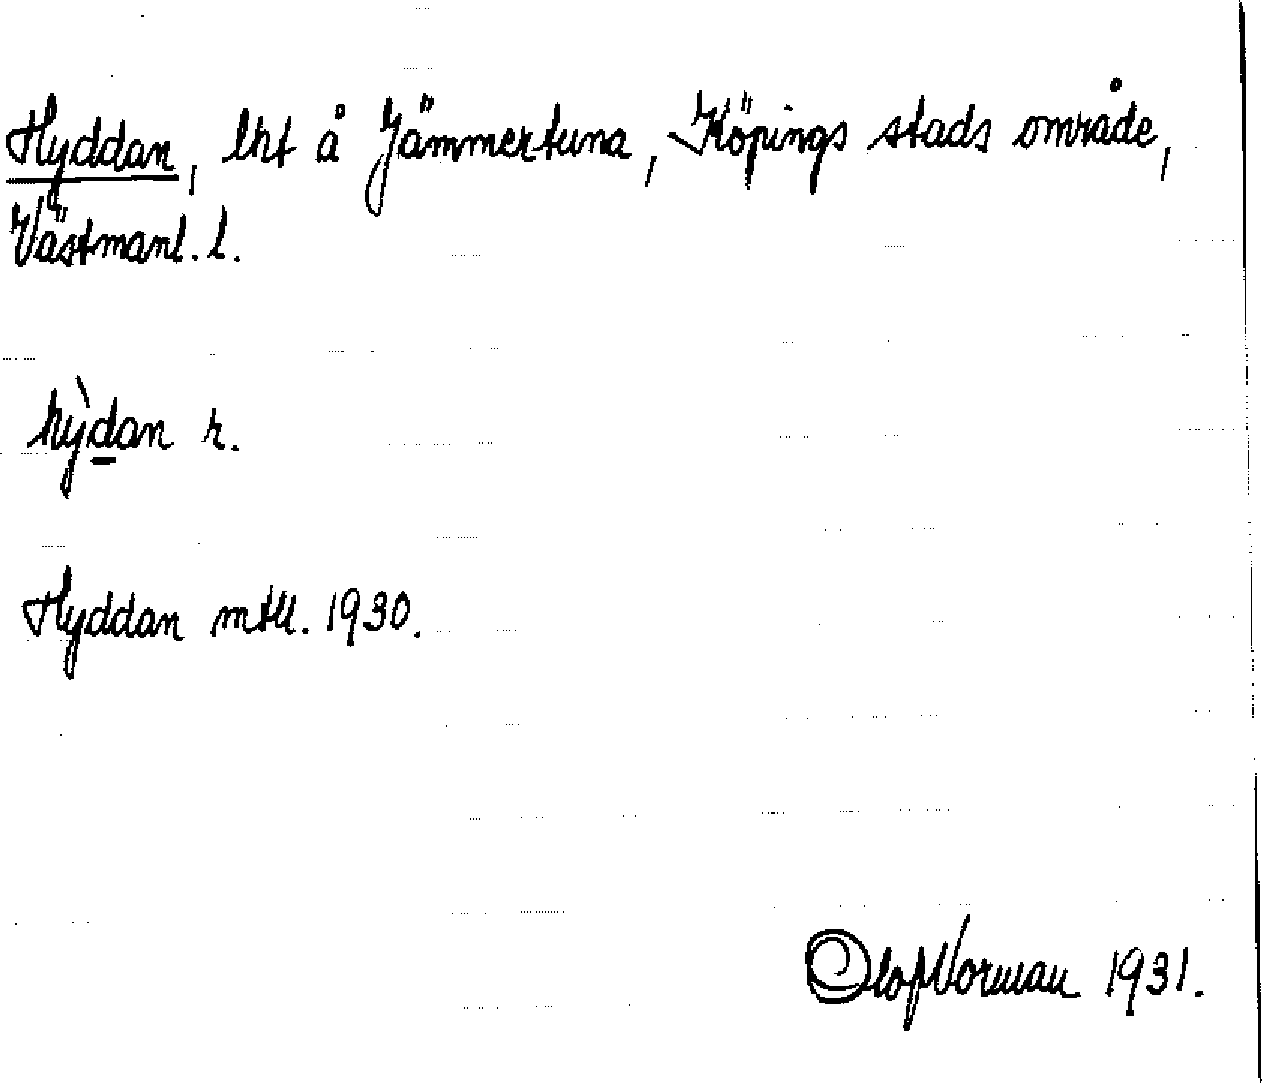 Hyddan, lht å Jämmertuna, Köpings stads område,
Västmanl. l.
hỳdan r.
Hyddan mtll. 1930.
Olof Norman 1931.